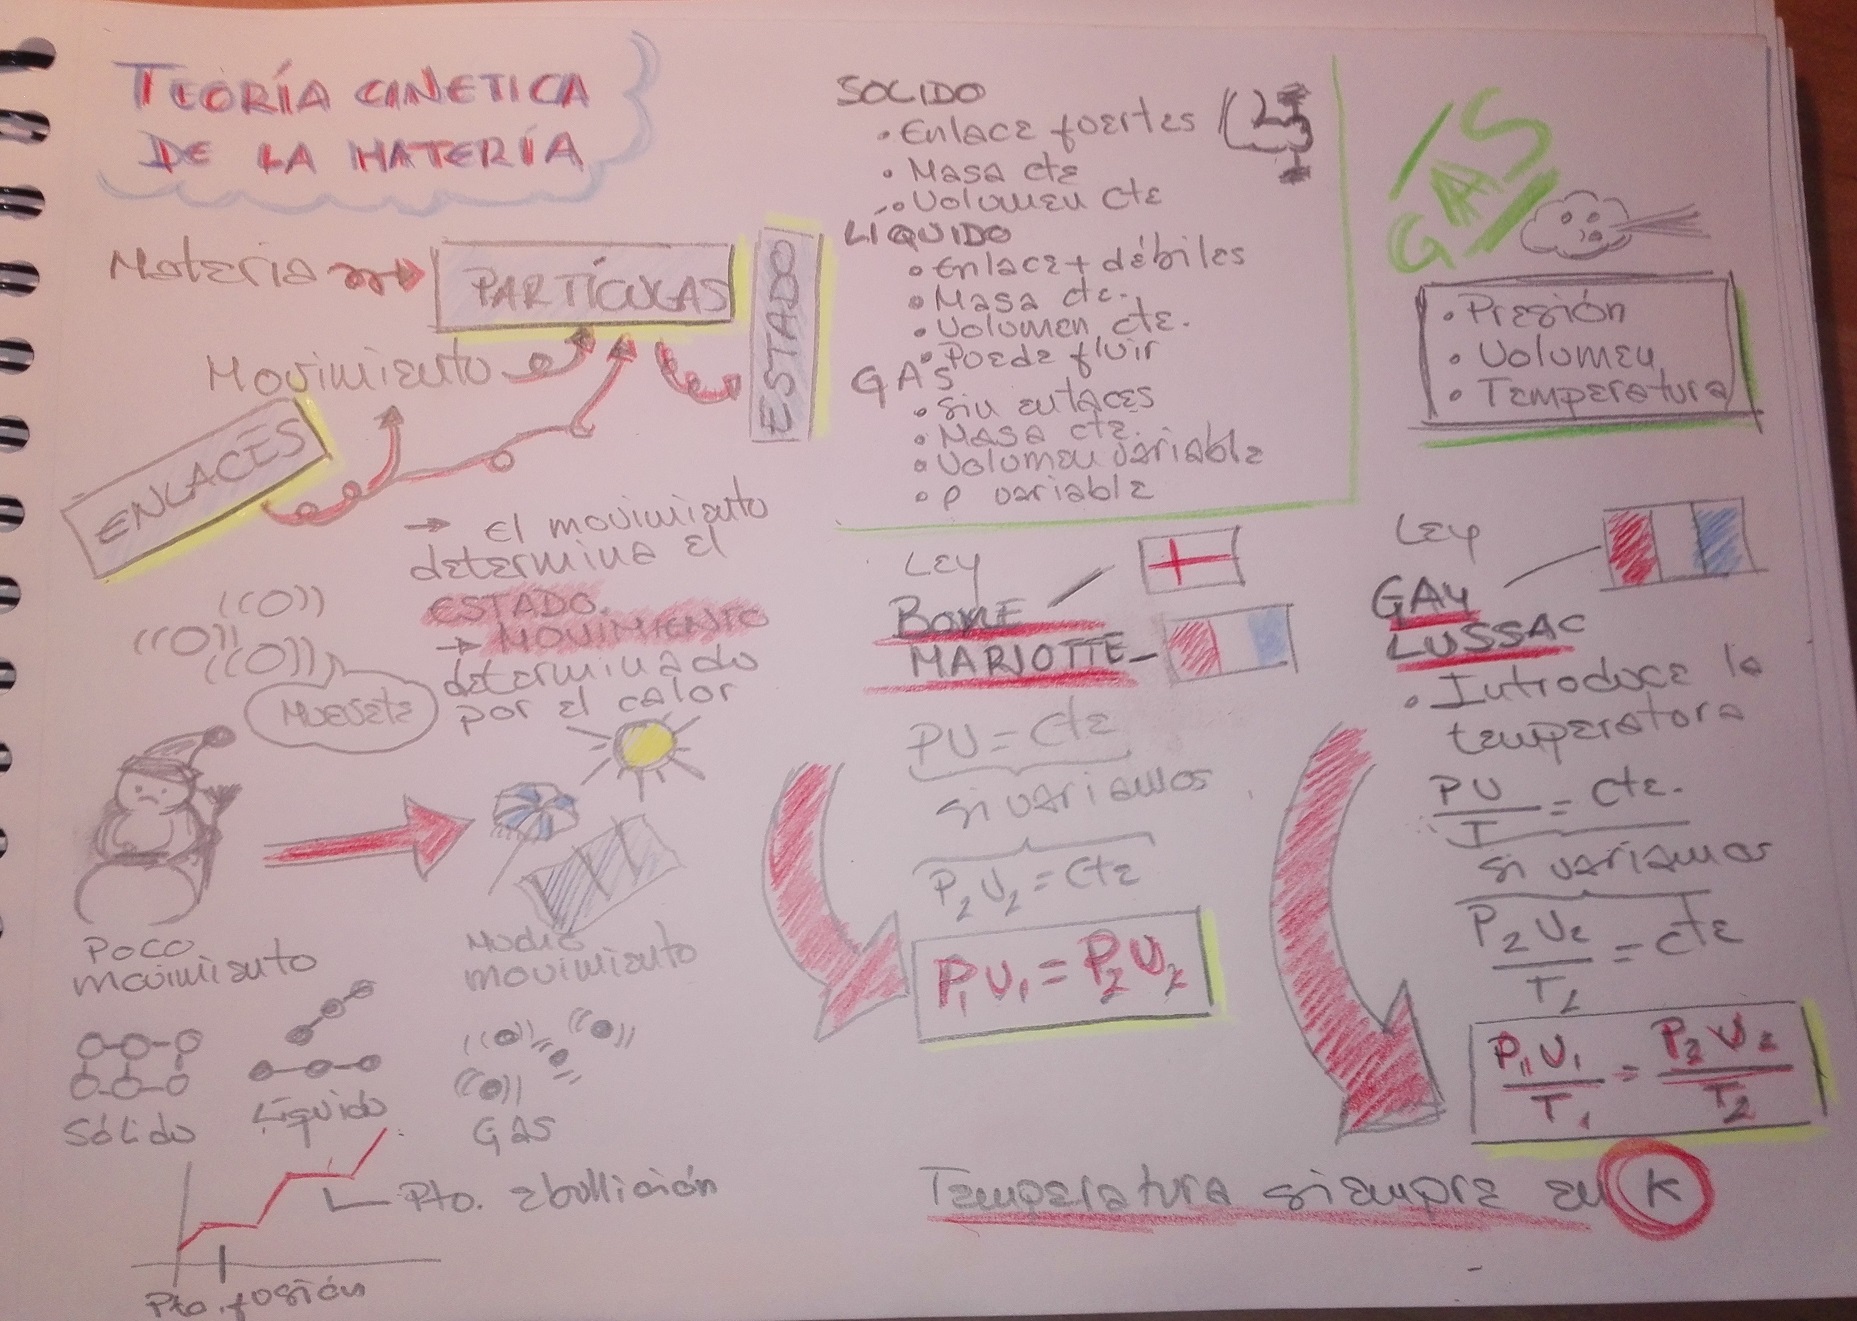 TEORÍA CINETICA
DE LA MATERÍA
Materia
PARTÍCULAS
ESTADO
Movimiento
ENLACES
→ El movimiento
determina el
ESTADO.
→ MOVIMIENTO
determinado
por el calor
((O))
((O))
((O))
MUEVETE
Poco
movimiento
Mucho
movimiento
Sólido
Líquido
GAS
Pto. ebullición
Pto. fusión
SOLIDO
• Enlace fuertes
• Masa cte
• Volumen cte
LÍQUIDO
• Enlace + débiles
• Masa cte.
• Volumen cte.
• Puede fluir
GAS
• Sin enlaces
• Masa cte.
• Volumen variable
• ρ variable
GAS
• Presión
• Volumen
• Temperatura
LEY
BOYLE
MARIOTTE
PV = cte
si variamos
P₂V₂ = cte
P₁V₁ = P₂V₂
LEY
GAY
LUSSAC
• Introduce la
temperatura
PV/T = cte.
si variamos
P₂V₂/T₂ = cte
P₁V₁/T₁ = P₂V₂/T₂
Temperatura siempre en K